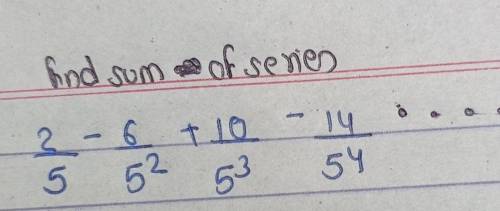 find sum of series
2/5 - 6/5² + 10/5³ - 14/5⁴ . . . .